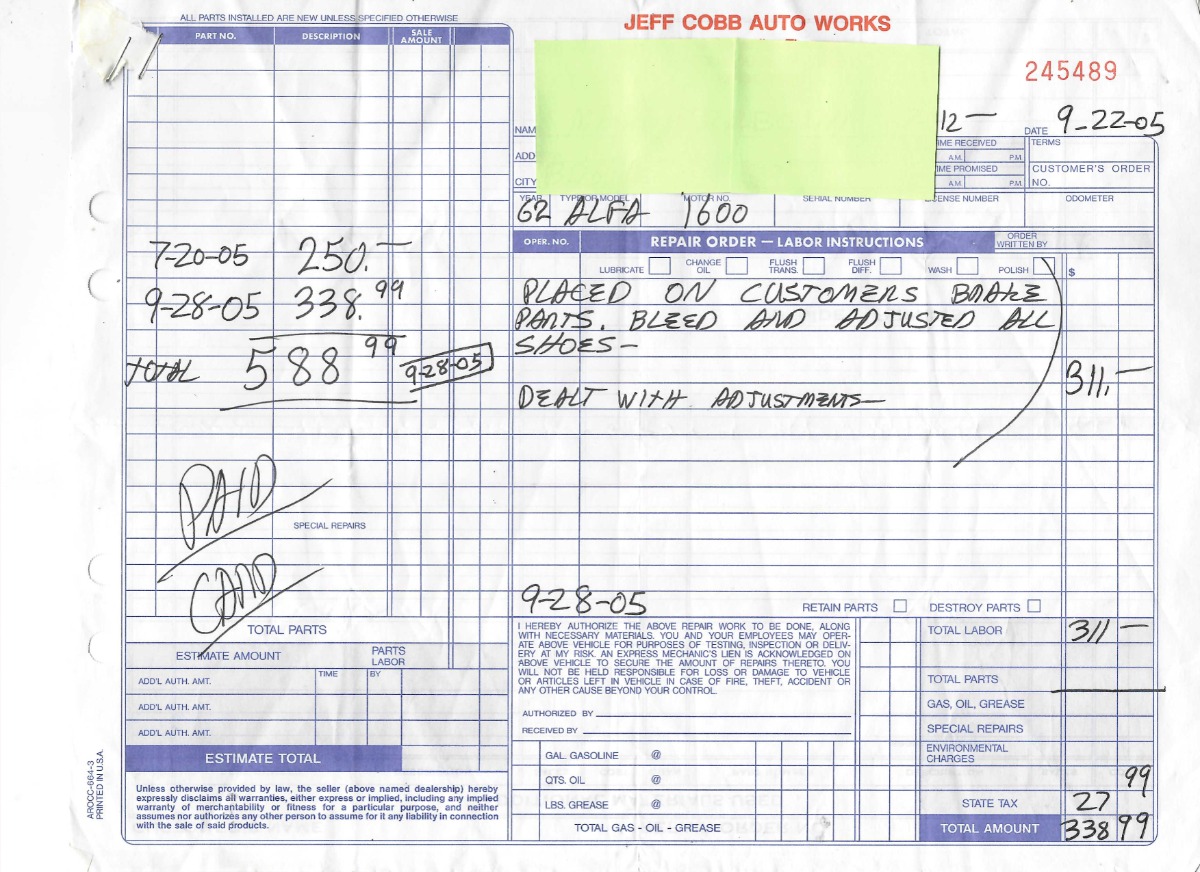 ALL PARTS INSTALLED ARE NEW UNLESS SPECIFIED OTHERWISE
PART NO. DESCRIPTION SALE AMOUNT
7-20-05 250.—
9-28-05 338.99
TOTAL 588 99 9-28-05
PAID
SPECIAL REPAIRS
CARD
TOTAL PARTS
ESTIMATE AMOUNT PARTS LABOR
TIME BY
ADD'L AUTH. AMT.
ADD'L AUTH. AMT.
ADD'L AUTH. AMT.
ESTIMATE TOTAL
Unless otherwise provided by law, the seller (above named dealership) hereby
expressly disclaims all warranties, either express or implied, including any implied
warranty of merchantability or fitness for a particular purpose, and neither
assumes nor authorizes any other person to assume for it any liability in connection
with the sale of said products.
AROCC-664-3
PRINTED IN U.S.A.
JEFF COBB AUTO WORKS
245489
12—
NAM
DATE 9-22-05
ADD
IME RECEIVED TERMS
A.M. P.M.
CITY
IME PROMISED CUSTOMER'S ORDER NO.
A.M. P.M.
YEAR TYPE OR MODEL MOTOR NO. SERIAL NUMBER CENSE NUMBER ODOMETER
62 ALFA 1600
OPER. NO. REPAIR ORDER — LABOR INSTRUCTIONS ORDER WRITTEN BY
LUBRICATE CHANGE OIL FLUSH TRANS. FLUSH DIFF. WASH POLISH $
PLACED ON CUSTOMERS BRAKE
PARTS. BLEED AND ADJUSTED ALL
SHOES—
311.—
DEALT WITH ADJUSTMENTS—
9-28-05
RETAIN PARTS DESTROY PARTS
I HEREBY AUTHORIZE THE ABOVE REPAIR WORK TO BE DONE, ALONG
WITH NECESSARY MATERIALS. YOU AND YOUR EMPLOYEES MAY OPER-
ATE ABOVE VEHICLE FOR PURPOSES OF TESTING, INSPECTION OR DELIV-
ERY AT MY RISK. AN EXPRESS MECHANIC'S LIEN IS ACKNOWLEDGED ON
ABOVE VEHICLE TO SECURE THE AMOUNT OF REPAIRS THERETO. YOU
WILL NOT BE HELD RESPONSIBLE FOR LOSS OR DAMAGE TO VEHICLE
OR ARTICLES LEFT IN VEHICLE IN CASE OF FIRE, THEFT, ACCIDENT OR
ANY OTHER CAUSE BEYOND YOUR CONTROL.
AUTHORIZED BY
RECEIVED BY
GAL. GASOLINE @
QTS. OIL @
LBS. GREASE @
TOTAL GAS - OIL - GREASE
TOTAL LABOR 311—
TOTAL PARTS
GAS, OIL, GREASE
SPECIAL REPAIRS
ENVIRONMENTAL CHARGES
STATE TAX 27 99
TOTAL AMOUNT 338 99